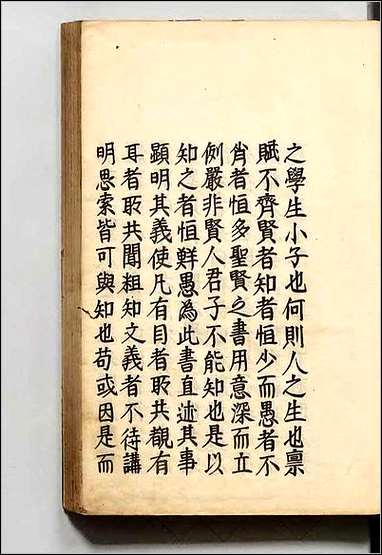 之學生小子也何則人之生也禀
賦不齊賢者知者恒少而愚者不
肖者恒多聖賢之書用意深而立
例嚴非賢人君子不能知也是以
知之者恒鮮愚為此書直述其事
顯明其義使凡有目者所共觀有
耳者所共聞粗知文義者不待講
明思索皆可與知也苟或因是而